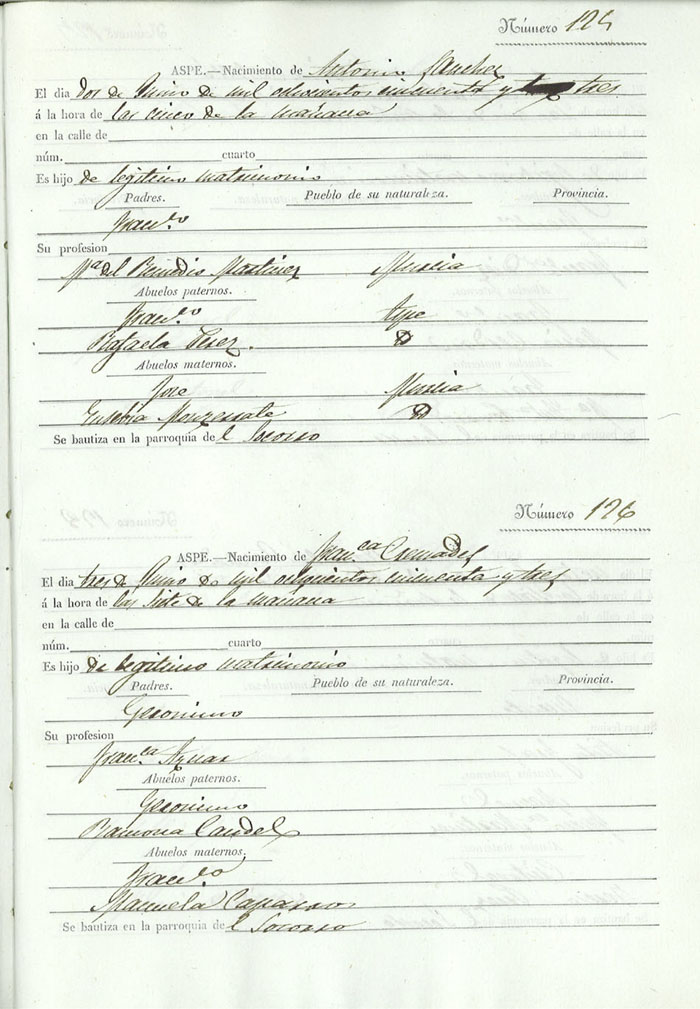 Número 125
ASPE.—Nacimiento de Antonio Sanchez
El dia dos de Junio de mil ochocientos cincuenta y tres
á la hora de las cinco de la mañana
en la calle de
núm. cuarto
Es hijo de legitimo matrimonio
Padres. Pueblo de su naturaleza. Provincia.
Franco
Su profesion
Ma del Remedio Martinez Murcia
Abuelos paternos.
Franco Aspe
Rafaela Perez. D
Abuelos maternos.
Jose Murcia
Eusebia Monzerrate D
Se bautiza en la parroquia del Socorro
Número 126
ASPE.—Nacimiento de Franca Cremades
El dia tres de Junio de mil ochocientos cincuenta y tres
á la hora de las siete de la mañana
en la calle de
núm. cuarto
Es hijo de legitimo matrimonio
Padres. Pueblo de su naturaleza. Provincia.
Geronimo
Su profesion
Franca Aznar
Abuelos paternos.
Geronimo
Ramona Candel
Abuelos maternos.
Franco
Manuela
Se bautiza en la parroquia del Socorro